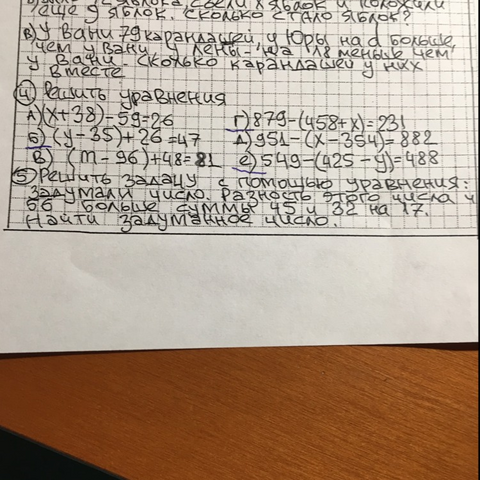 яблока, съели x яблок и положили
еще 9 яблок. Сколько стало яблок?
в) У Вани 79 карандашей у Юры на d больше,
чем у Вани. У Лены- на 18 меньше чем
у Вани. Сколько карандашей у них
вместе
④ Решить уравнения
А) (x+38)-59=26
Б) (y-35)+26=47
В) (m-96)+48=81
Г) 879-(458+x)=231
Д) 951-(x-354)=882
е) 549-(425-y)=488
⑤ Решить задачу с помощью уравнения:
Задумали число. Разность этого числа и
56 больше суммы 45 и 32 на 17.
Найти задуманное число.